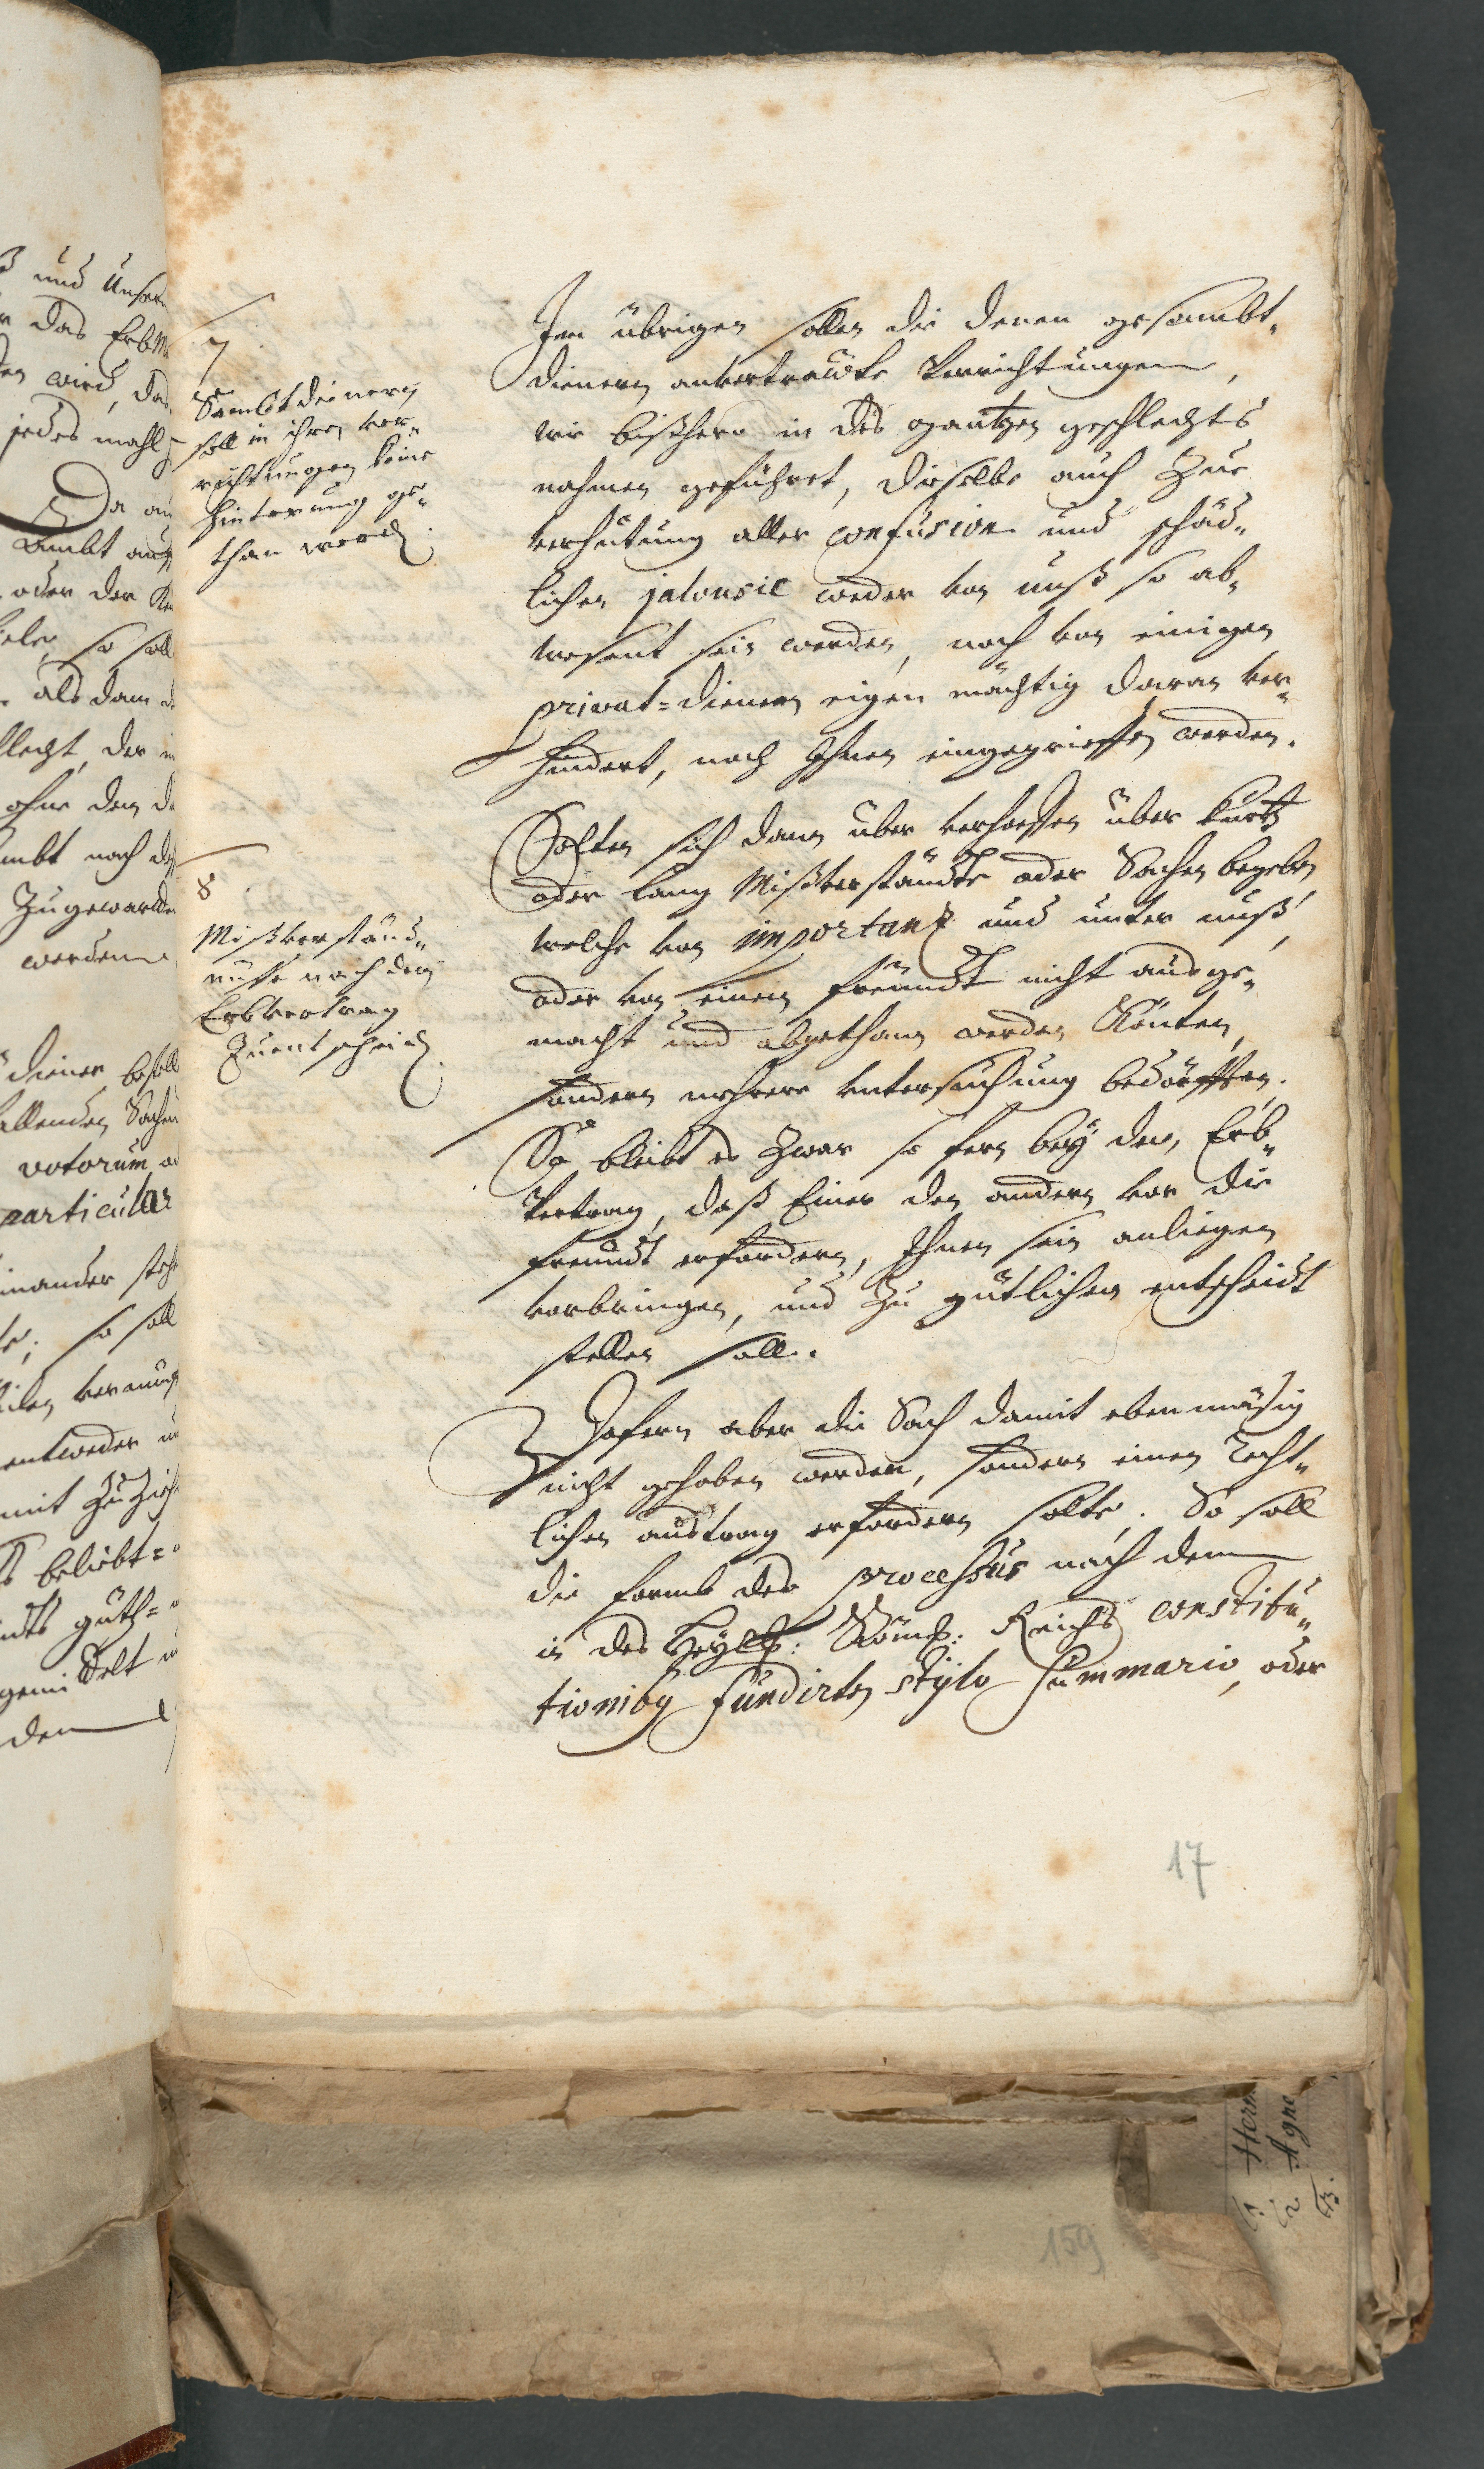 7
Sambt dienern
soll in ihren ver„
richtungen keine
hinterung ge„
than werd.
Im übrigen sollen die denen gesambt„
dienern anvertrawte Verrichtungen,
wie bißhero in des gantzen geschlechts
nahmen geführet, dieselbe auch zur
verhütung aller confusion und schäd„
lichen jalousie weder von unß so ab„
wesent sein werden, noch von einigen
privat=dienern eigen mächtig daran ver„
hindert, noch Ihnen eingegrieffen werden.
8
Mißverständ„
nusse nach dem
Erbvertrag
Zuentscheid.
Solten sich dann über verhoffen über kurtz
oder lang Mißverständte oder Sachen begeben
welche von importanz und unter unß,
oder von einem freundt nicht ausge„
macht und abgethan werden könten,
sondern mehrere untersuchung bedörfften.
So bleibt es zwar so fern bey dem Erb„
Vertrag, daß Einer den andern vor die
freundt erfordern, Ihnen sein anliegen
vorbringen, und zu gütlichen entscheidt
stellen soll.
Dofern aber die Sach damit ebenmäsig
nicht gehoben werden, sondern einen recht„
lichen austrag erfordern solte. So soll
die formb des processus nach dem
in des Heyl: Röm: Reichs constitu„
tionibus fundirten stylo summario, oder
17
159
und Unser
das Erb
wird, das
jedes mahl
Da
ambt
oder der
so soll
als dann
der
ohne den
nach
Zugewarten
werden
diener bestell
Sachen
votorum
particular
so soll
entweder
mit
beliebt=
güth=
den
Hern
Agne